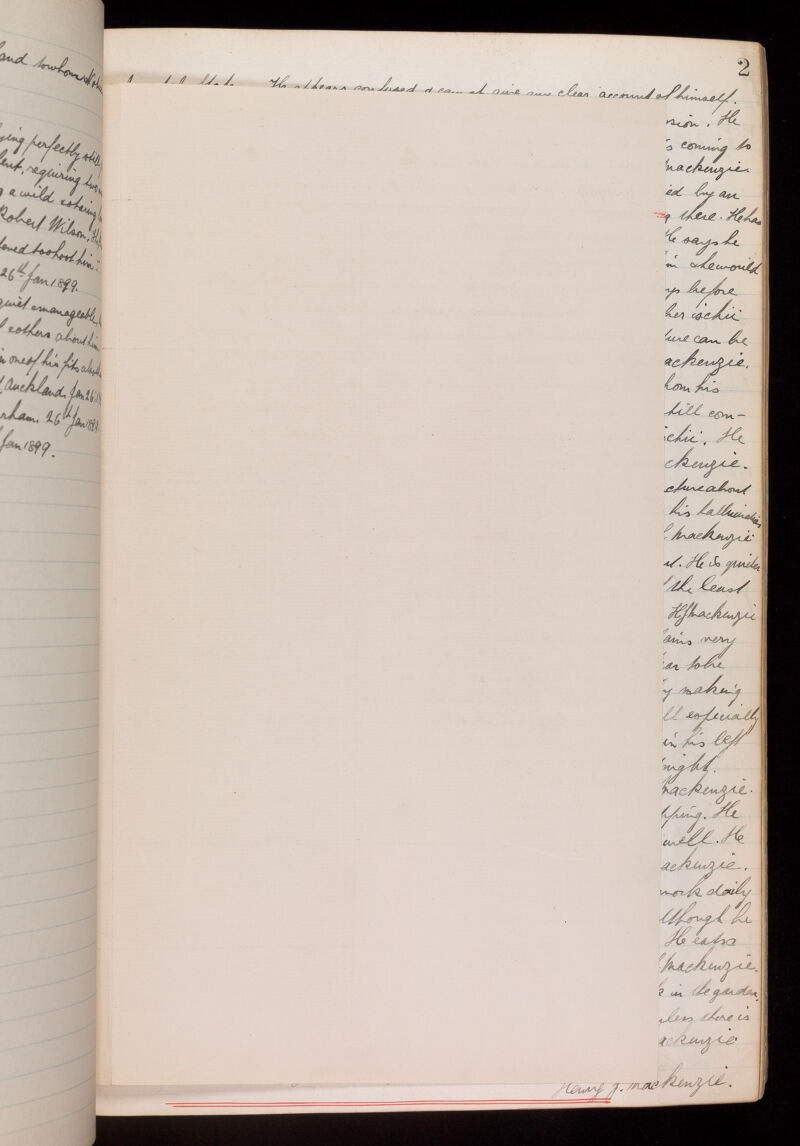 and to whom
ying perfectly still
lent, requiring two
g a wild staring
Robert Wilson. He
26th Jan 1899.
quiet & manageable
& others about him
in one of his fits
Auckland. Jan 26
rham. 26th Jan 1899
Jan 1899.
2
He appears confused & cannot give any clear account of himself.
sion. He
s coming to
Mackenzie.
ed by an
g there. He has
He says he
in she would
ys before
her ischii
ture can be
ackenzie.
from his
still com-
schii. He
ckenzie.
cture about
his hallucinations
J. Mackenzie
ut. He is quieter
the least
H J Mackenzie
ains very
ar to be
y making
ll especially
in his left
night.
Mackenzie.
pping. He
well. He
ackenzie.
work daily
lthough he
He eats
J Mackenzie.
k in the garden,
unless there is
ackenzie
Henry J. Mackenzie.